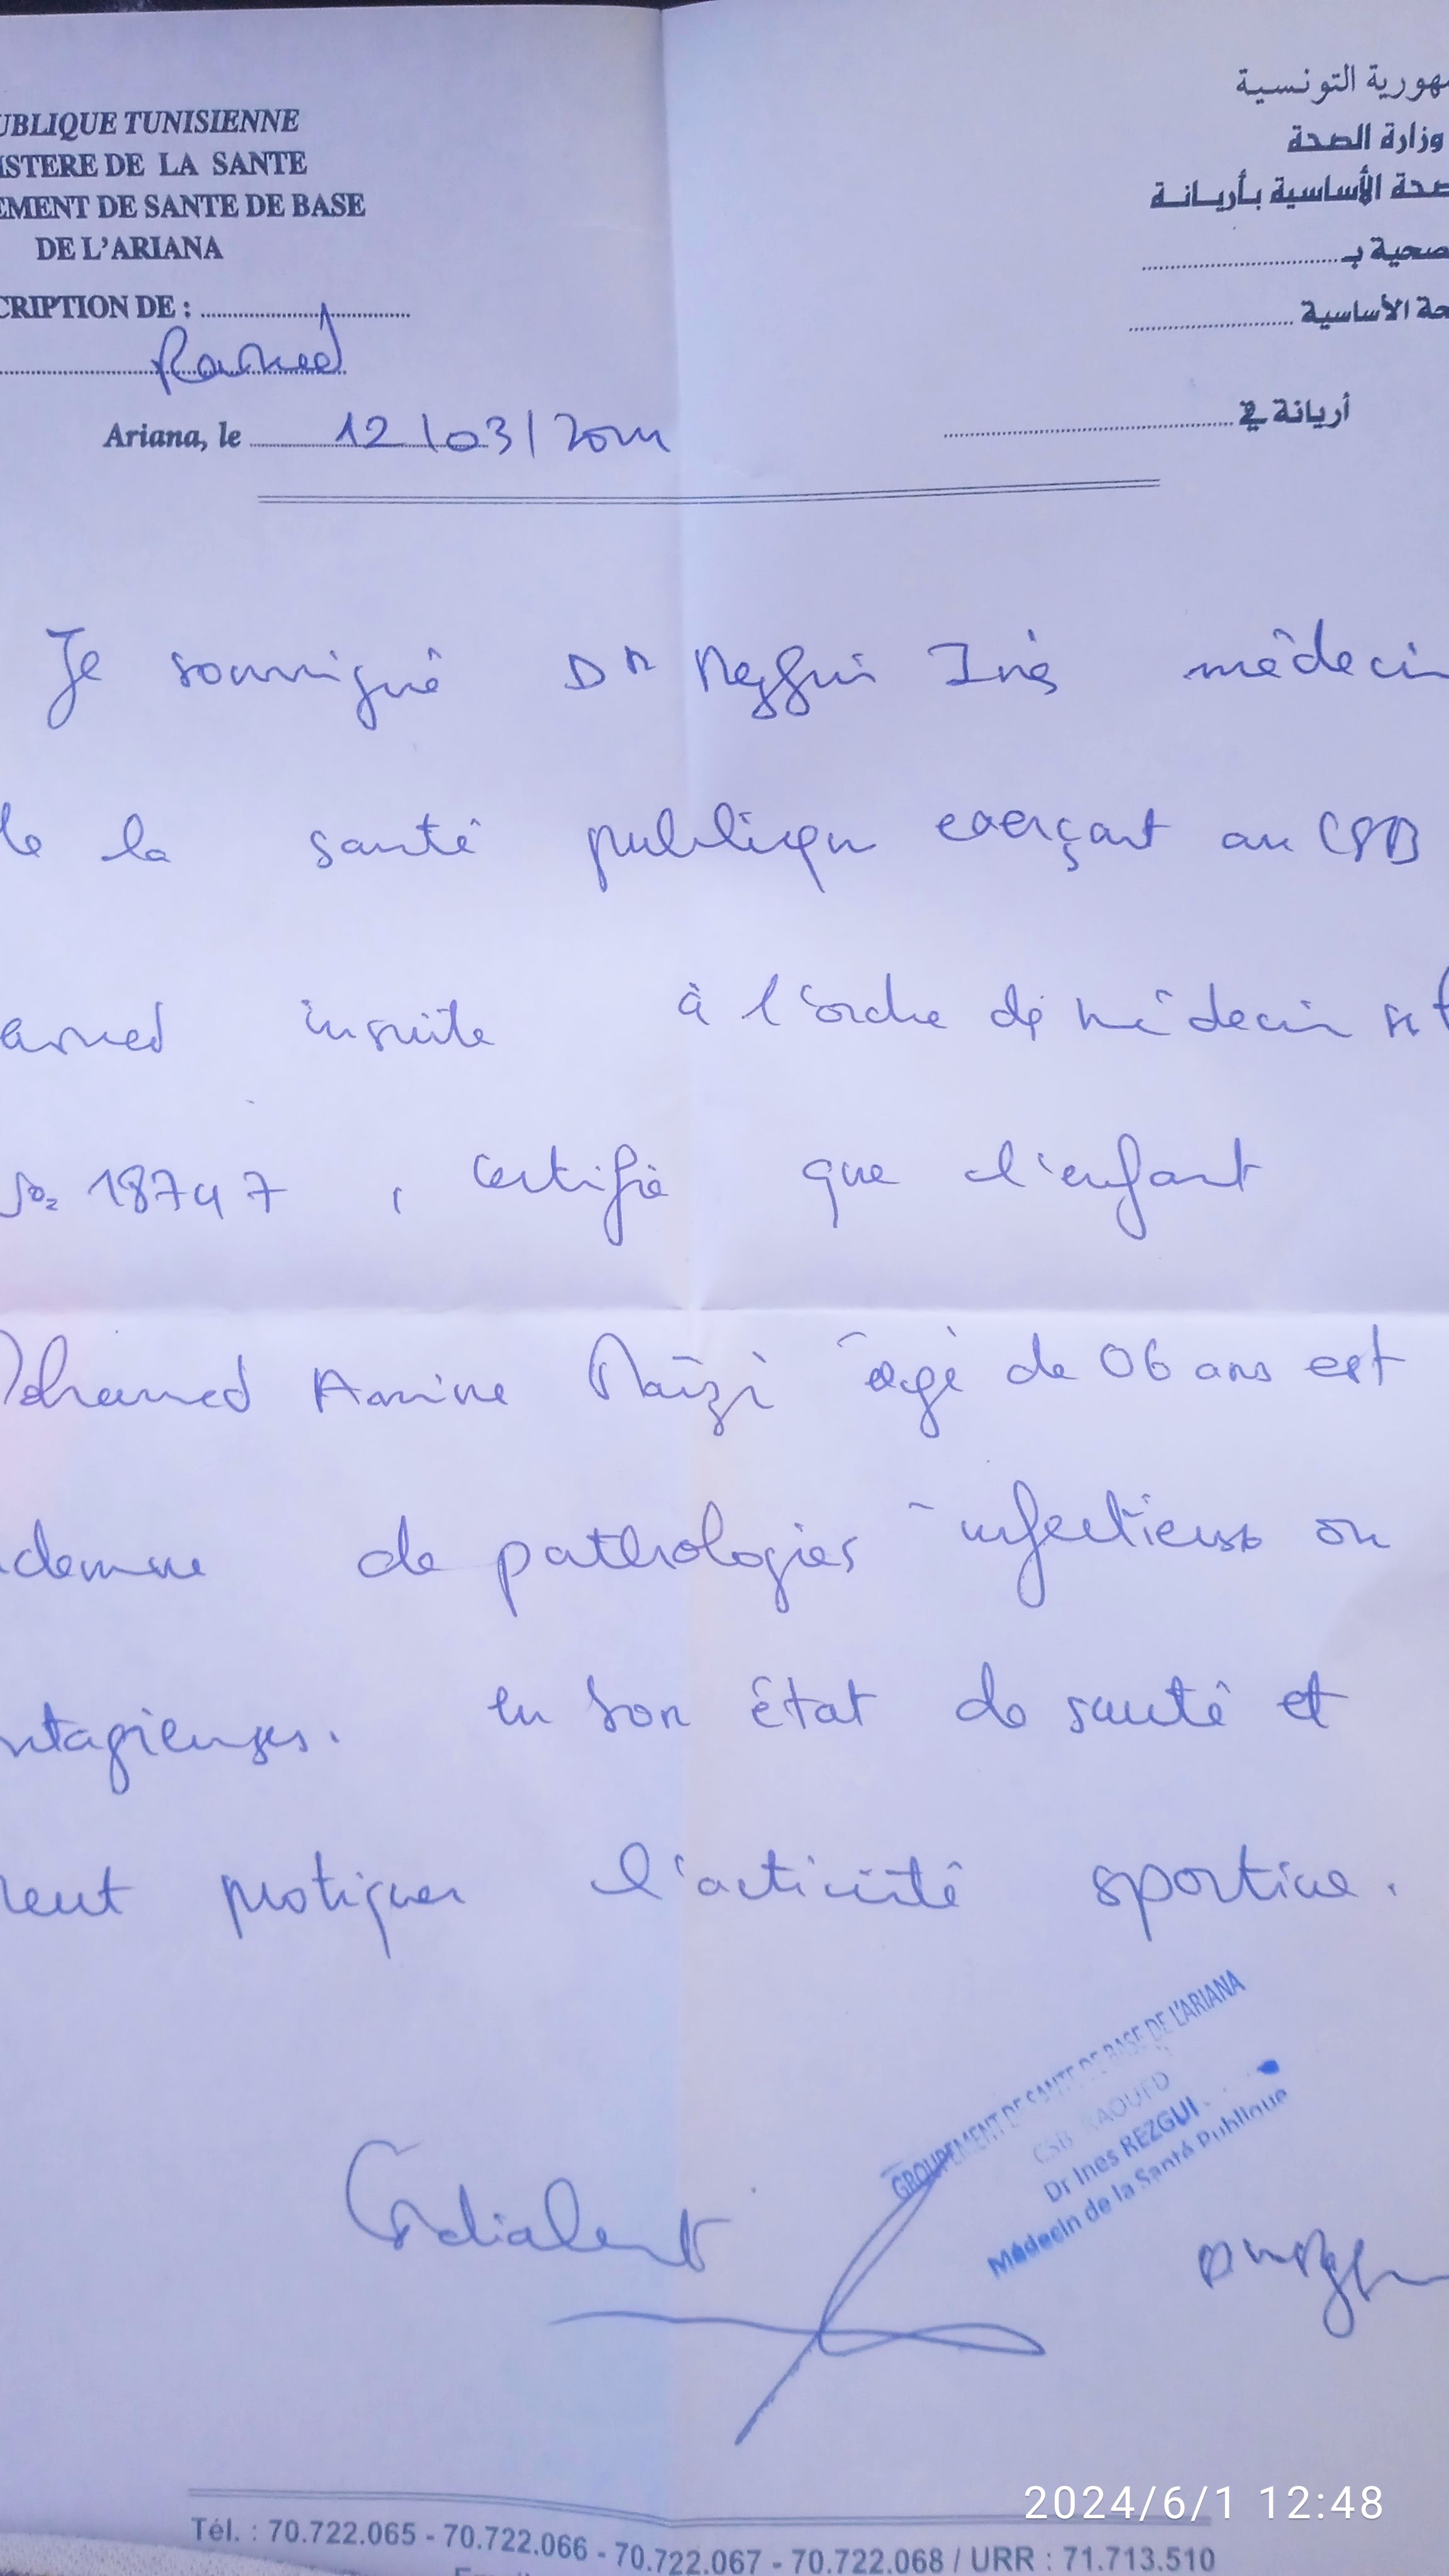 UBLIQUE TUNISIENNE
ISTERE DE LA SANTE
EMENT DE SANTE DE BASE
DE L'ARIANA
CRIPTION DE : ....................
Raoued
Ariana, le 12/03/20
هورية التونسية
وزارة الصحة
صحة الأساسية بأريانة
صحية بـ ....................
حة الأساسية ....................
أريانة في ....................
Je soussigné Dr Rezgui Inès médecin
de la santé publique exerçant au CSB
aoued inscrite à l'ordre de médecin
18747, certifie que l'enfant
Mohamed Amine âgé de 06 ans est
demne de pathologies infectieuses ou
ntagieuses. en bon état de santé et
peut pratiquer l'activité sportive.
GROUPEMENT DE SANTE DE BASE DE L'ARIANA
CSB RAOUED
Dr Ines REZGUI
Médecin de la Santé Publique
Cordialement
2024/6/1 12:48
Tél. : 70.722.065 - 70.722.066 - 70.722.067 - 70.722.068 / URR : 71.713.510